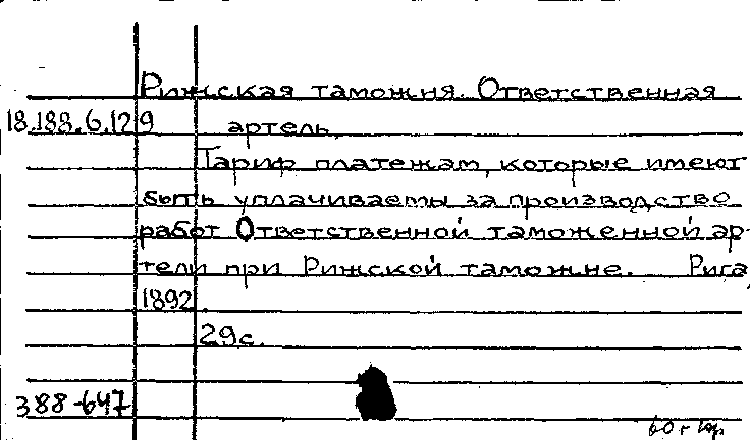 Рижская таможня. Ответственная
18.188.6.129 артель.
Тариф платежам, которые имеют
быть уплачиваемы за производство
работ Ответственной таможенной ар-
тели при Рижской таможне. Рига,
1892
29с.
388-647
60 г